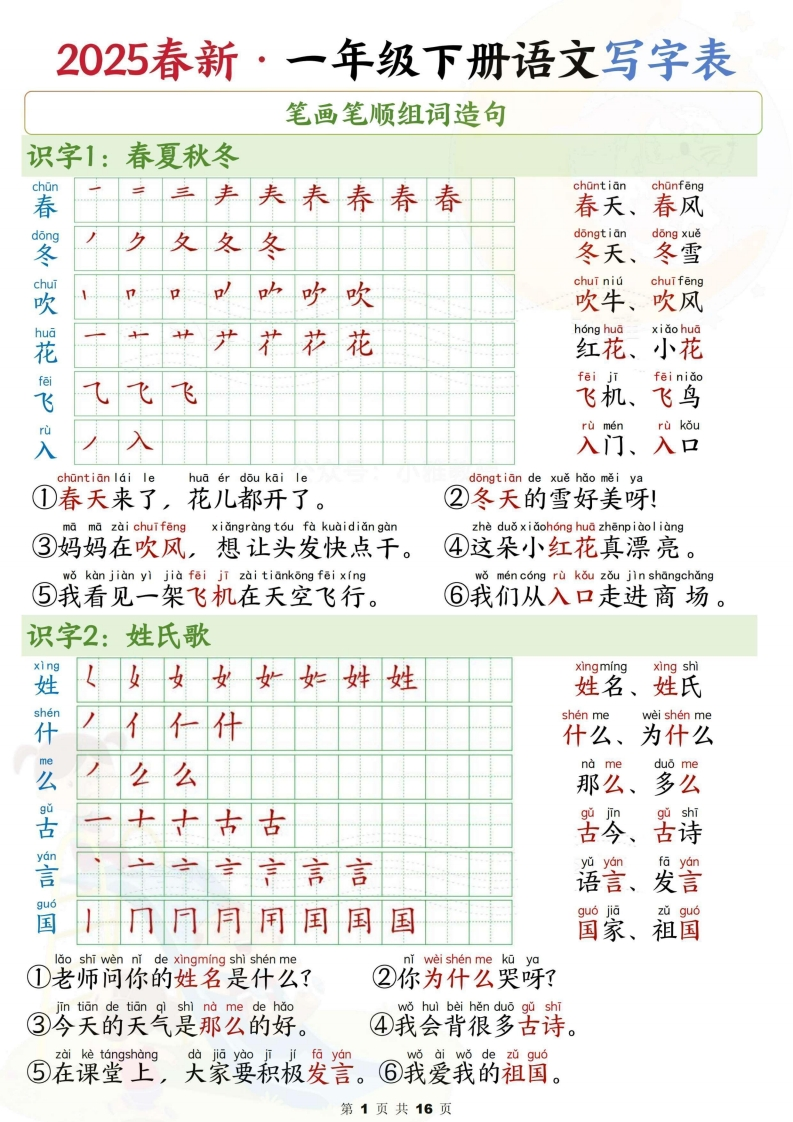 2025春新·一年级下册语文写字表
笔画笔顺组词造句
识字1：春夏秋冬
chūn chūntiān chūnfēng
春 一 二 三 春 春天、春风
dōng dōngtiān dōng xuě
冬 丿 夂 冬 冬天、冬雪
chuī chuī niú chuīfēng
吹 丨 口 吹 吹牛、吹风
huā hóng huā xiǎo huā
花 一 十 艹 花 红花、小花
fēi fēi jī fēi niǎo
飞 乁 飞 飞机、飞鸟
rù rù mén rù kǒu
入 丿 入 入门、入口
chūntiān lái le huā ér dōu kāi le dōngtiān de xuě hǎo měi ya
①春天来了，花儿都开了。 ②冬天的雪好美呀!
mā mā zài chuīfēng xiǎngràng tóu fà kuàidiǎn gàn zhè duǒ xiǎohóng huā zhēnpiàoliàng
③妈妈在吹风，想让头发快点干。 ④这朵小红花真漂亮。
wǒ kàn jiàn yì jià fēi jī zài tiānkōng fēi xíng wǒ mén cóng rù kǒu zǒu jìn shāngchǎng
⑤我看见一架飞机在天空飞行。 ⑥我们从入口走进商场。
识字2：姓氏歌
xìng xìngmíng xìng shì
姓 女 姓 姓名、姓氏
shén shén me wèi shén me
什 丿 亻 什 什么、为什么
me nà me duō me
么 丿 么 么 那么、多么
gǔ gǔ jīn gǔ shī
古 一 十 古 古 古今、古诗
yán yǔ yán fā yán
言 丶 亠 言 言 语言、发言
guó guó jiā zǔ guó
国 丨 冂 国 国 国家、祖国
lǎo shī wèn nǐ de xìngmíng shì shén me nǐ wèi shén me kū ya
①老师问你的姓名是什么? ②你为什么哭呀?
jīn tiān de tiān qì shì nà me de hǎo wǒ huì bèi hěn duō gǔ shī
③今天的天气是那么的好。 ④我会背很多古诗。
zài kè tángshàng dà jiā yào jī jí fā yán wǒ ài wǒ de zǔ guó
⑤在课堂上，大家要积极发言。 ⑥我爱我的祖国。
第 1 页 共 16 页